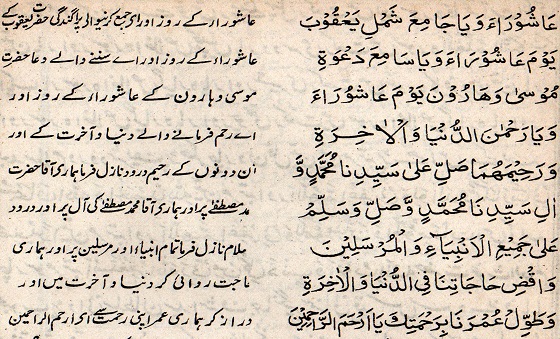 عَاشُوْرَاءَ وَيَا جَامِعَ شَمْلِ يَعْقُوْبَ
يَوْمَ عَاشُوْرَاءَ وَيَا سَامِعَ دَعْوَةِ
مُوْسٰى وَهَارُوْنَ يَوْمَ عَاشُوْرَاءَ
وَيَا رَحْمٰنَ الدُّنْيَا وَالْاٰخِرَةِ
وَرَحِيْمَهُمَا صَلِّ عَلٰى سَيِّدِنَا مُحَمَّدٍ وَّ
اٰلِ سَيِّدِنَا مُحَمَّدٍ وَّصَلِّ وَسَلِّمْ
عَلٰى جَمِيْعِ الْاَنْبِيَاءِ وَالْمُرْسَلِيْنَ
وَاقْضِ حَاجَاتِنَا فِى الدُّنْيَا وَالْاٰخِرَةِ
وَطَوِّلْ عُمُرَنَا بِرَحْمَتِكَ يَا اَرْحَمَ الرَّاحِمِيْنَ
عاشوراء کے روز اور اے جمع کرنیوالے پراگندگی حضرت یعقوب کے
عاشوراء کے روز اور اے سننے والے دعا حضرت
موسی وہارون کے عاشوراء کے روز اور
اے رحم فرمانے والے دنیا و آخرت کے اور
ان دونوں کے رحیم درود نازل فرما ہماری آقا حضرت
محمد مصطفےٰ پر اور ہماری آقا محمد مصطفےٰ کی آل پر اور درود
سلام نازل فرما تمام انبیاء اور مرسلین پر اور ہماری
حاجت روائی کر دنیا و آخرت میں اور
دراز کر ہماری عمر اپنی رحمت سے اے ارحم الراحمین